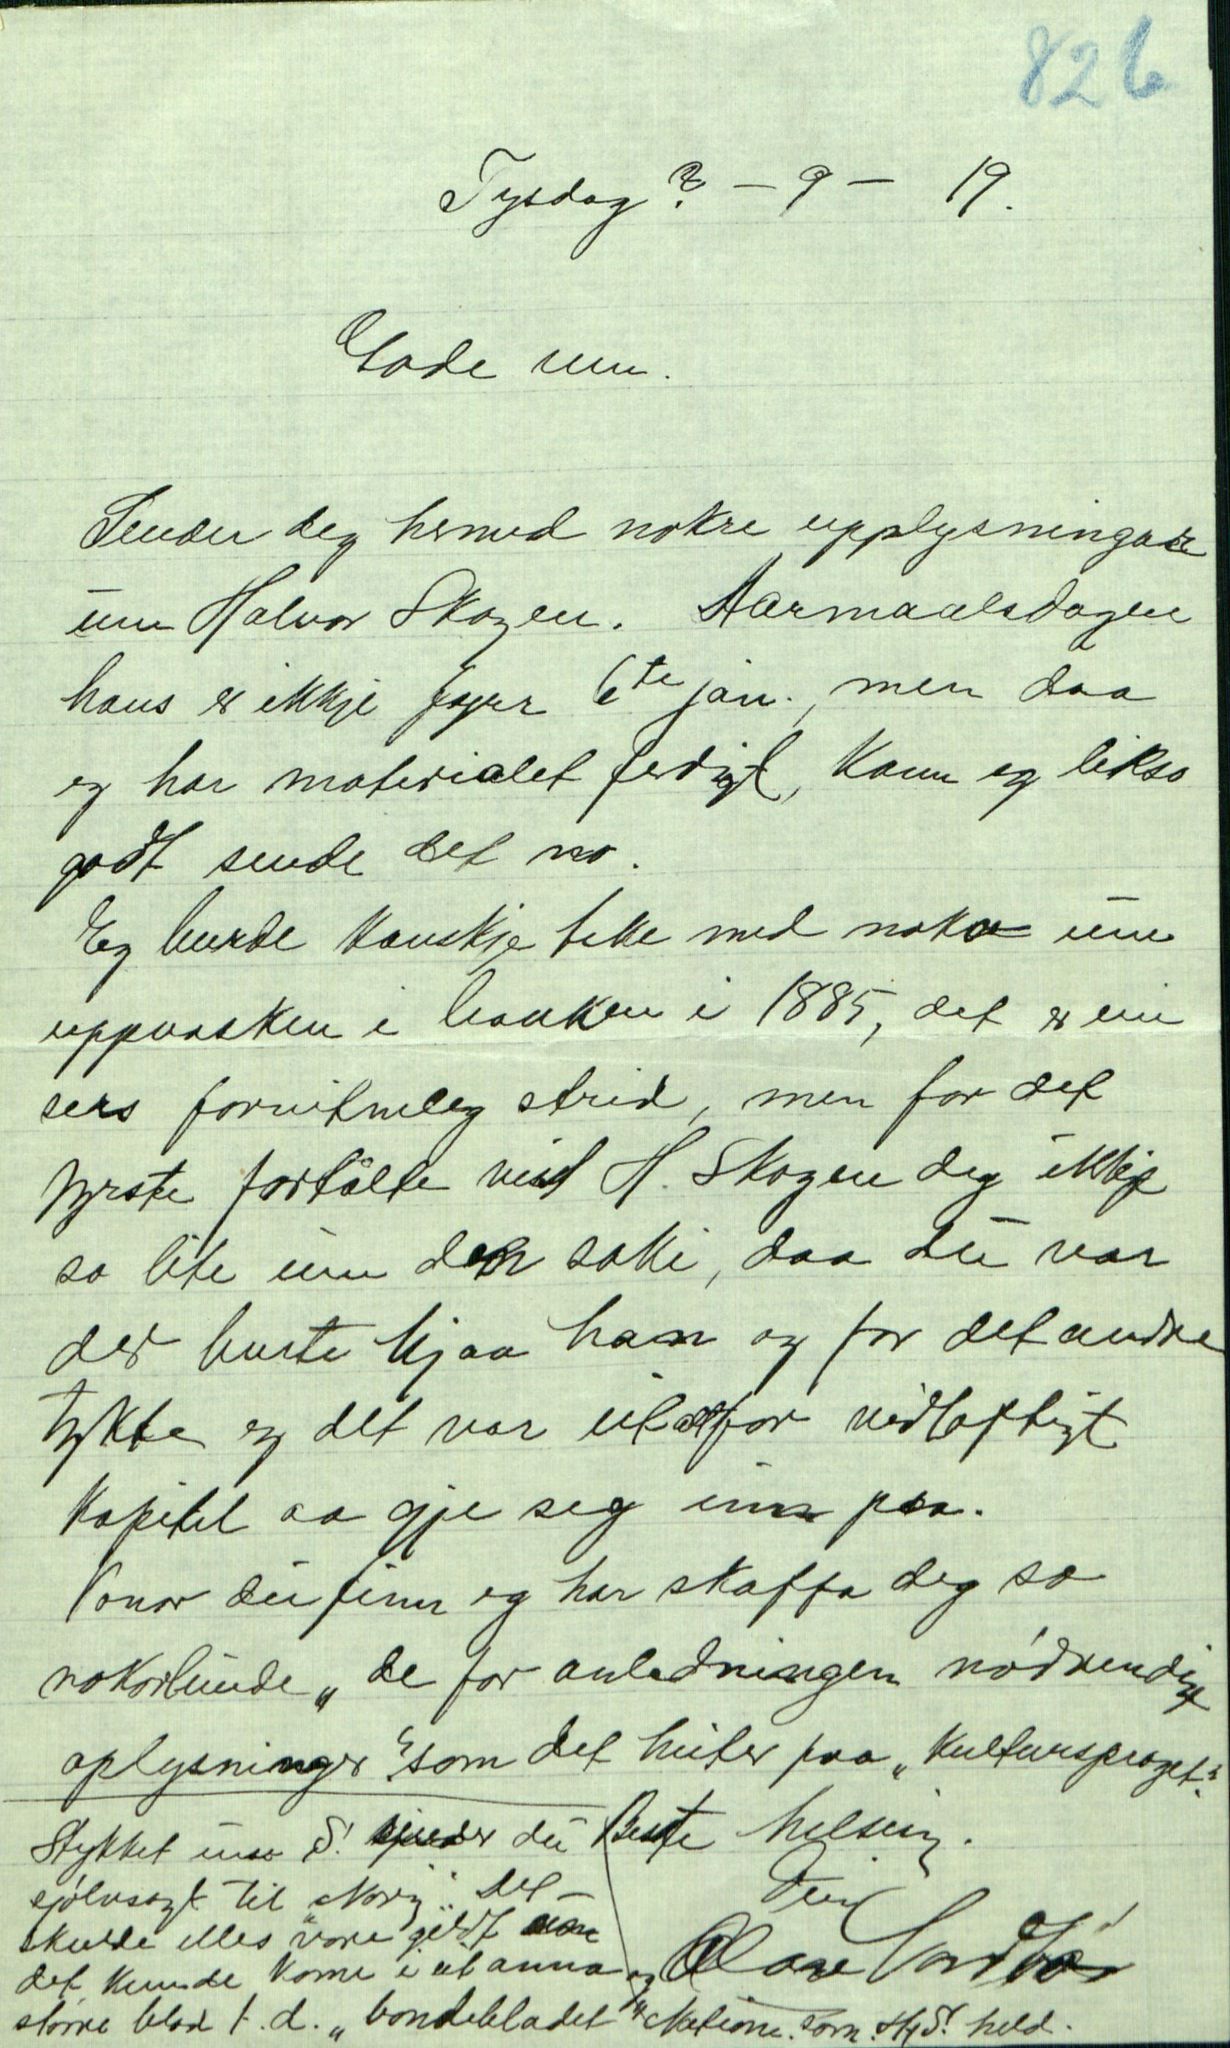 826
Tysdag ? – 9 – 19.
Gode ven.
Sender deg hermed nokre upplysningar
um Halvor Skogen. Aarmaalsdagen
hans er ikkje fyrr 6te jan., men daa
eg har materialet ferdigt, kann eg likso
godt sende det no.
Eg burde kanskje teke med noko um
uppvasken i banken i 1885, det er ein
sers forvitneleg strid, men for det
fyrste fortålte visst H. Skogen deg ikkje
so lite um den saki, daa du var
der burte hjaa han og for det andre
tykte eg det var eit altfor vidløftigt
kapitel aa gje seg inn paa.
Vonar du finn eg har skaffa deg so
nokorlunde „de for anledningen nødvendige
oplysninger“ som det heiter paa „Kultursproget“.
Beste helsing.
Din
Olav Sordbø
Stykket um S! sender du
sjølvsagt til „Norig“. Det
skulde elles vore gildt um
det kunde kome i eit anna
større blad t.d. „bondebladet“ Nationen som H. S! held.